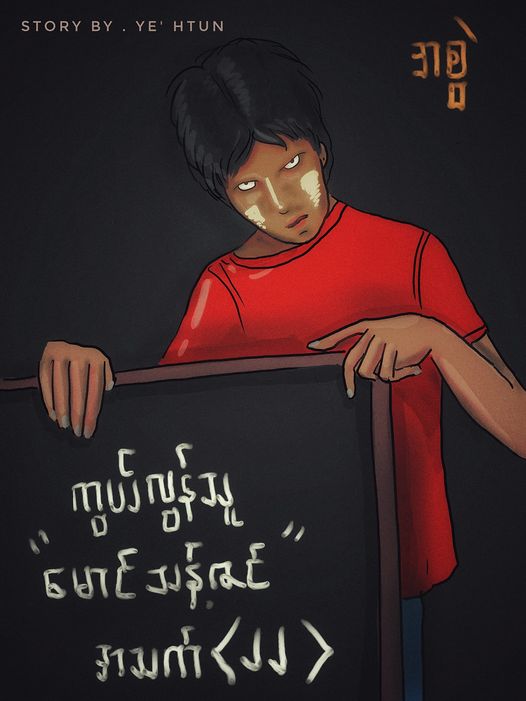 STORY BY . YE' HTUN
အစွဲ
ကွယ်လွန်သူ
"မောင်သန့်ဇင်"
အသက်〈၂၂〉